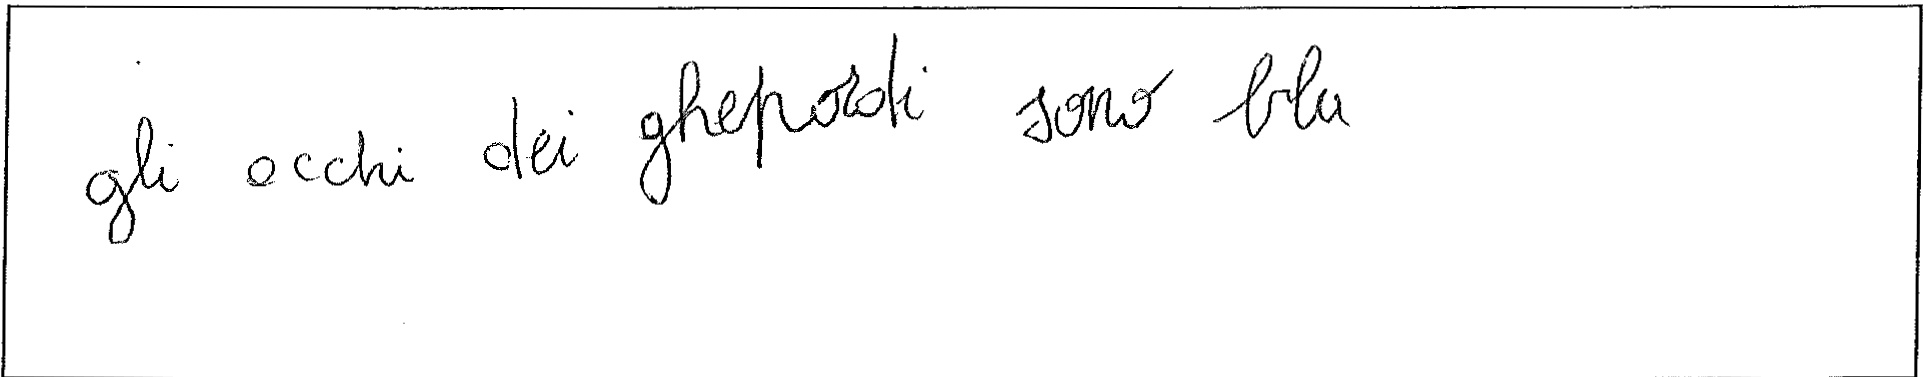 gli occhi dei ghepardi sono blu